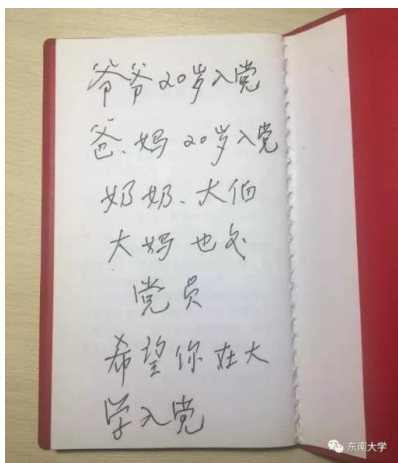 爷爷20岁入党
爸、妈20岁入党
奶奶、大伯
大妈也是
党员
希望你在大
学入党
东南大学